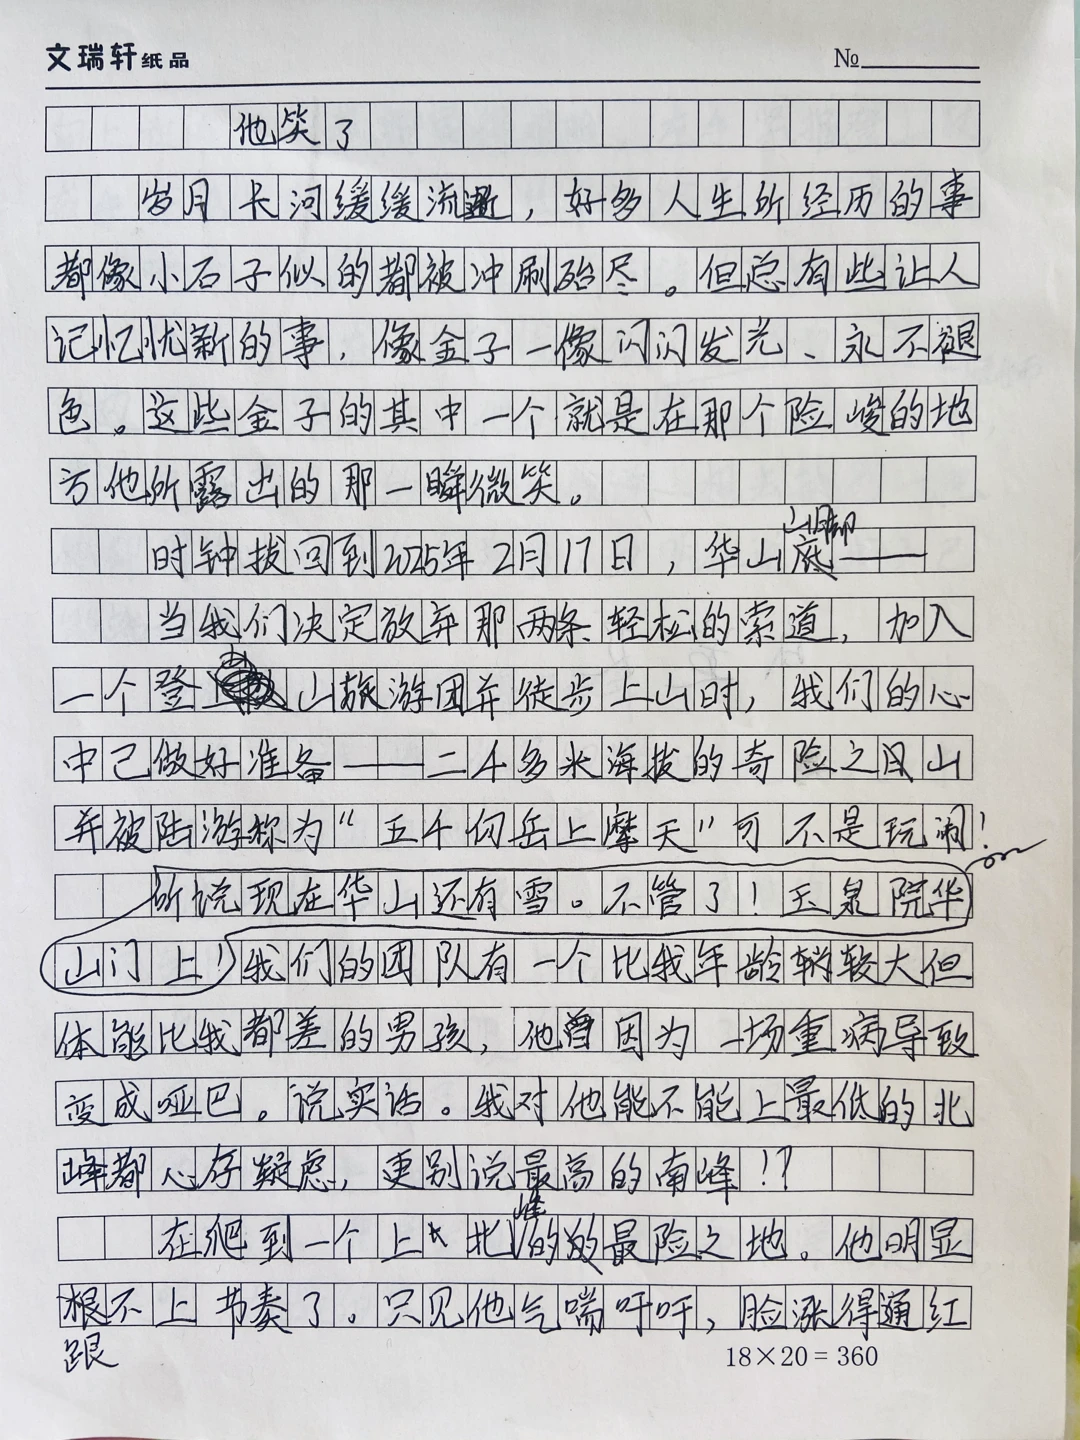 文瑞轩纸品 №
他笑了
岁月长河缓缓流逝，好多人生所经历的事
都像小石子似的都被冲刷殆尽。但总有些让人
记忆忧新的事，像金子一像闪闪发光、永不褪
色。这些金子的其中一个就是在那个险峻的地
方他所露出的那一瞬微笑。
山脚
时钟拨回到2025年2月17日，华山底——
当我们决定放弃那两条轻松的索道，加入
一个登山旅游团并徒步上山时，我们的心
中已做好准备——二千多米海拔的奇险之山
并被陆游称为“五千仞岳上摩天”可不是玩闹！
所说现在华山还有雪。不管了！玉泉院华
山门上！我们的团队有一个比我年龄稍较大但
体能比我都差的男孩，他曾因为一场重病导致
变成哑巴。说实话。我对他能不能上最低的北
峰都心存疑虑，更别说最高的南峰！？
峰
在爬到一个上北的最险之地。他明显
根不上节奏了。只见他气喘吁吁，脸涨得通红
跟
18×20=360